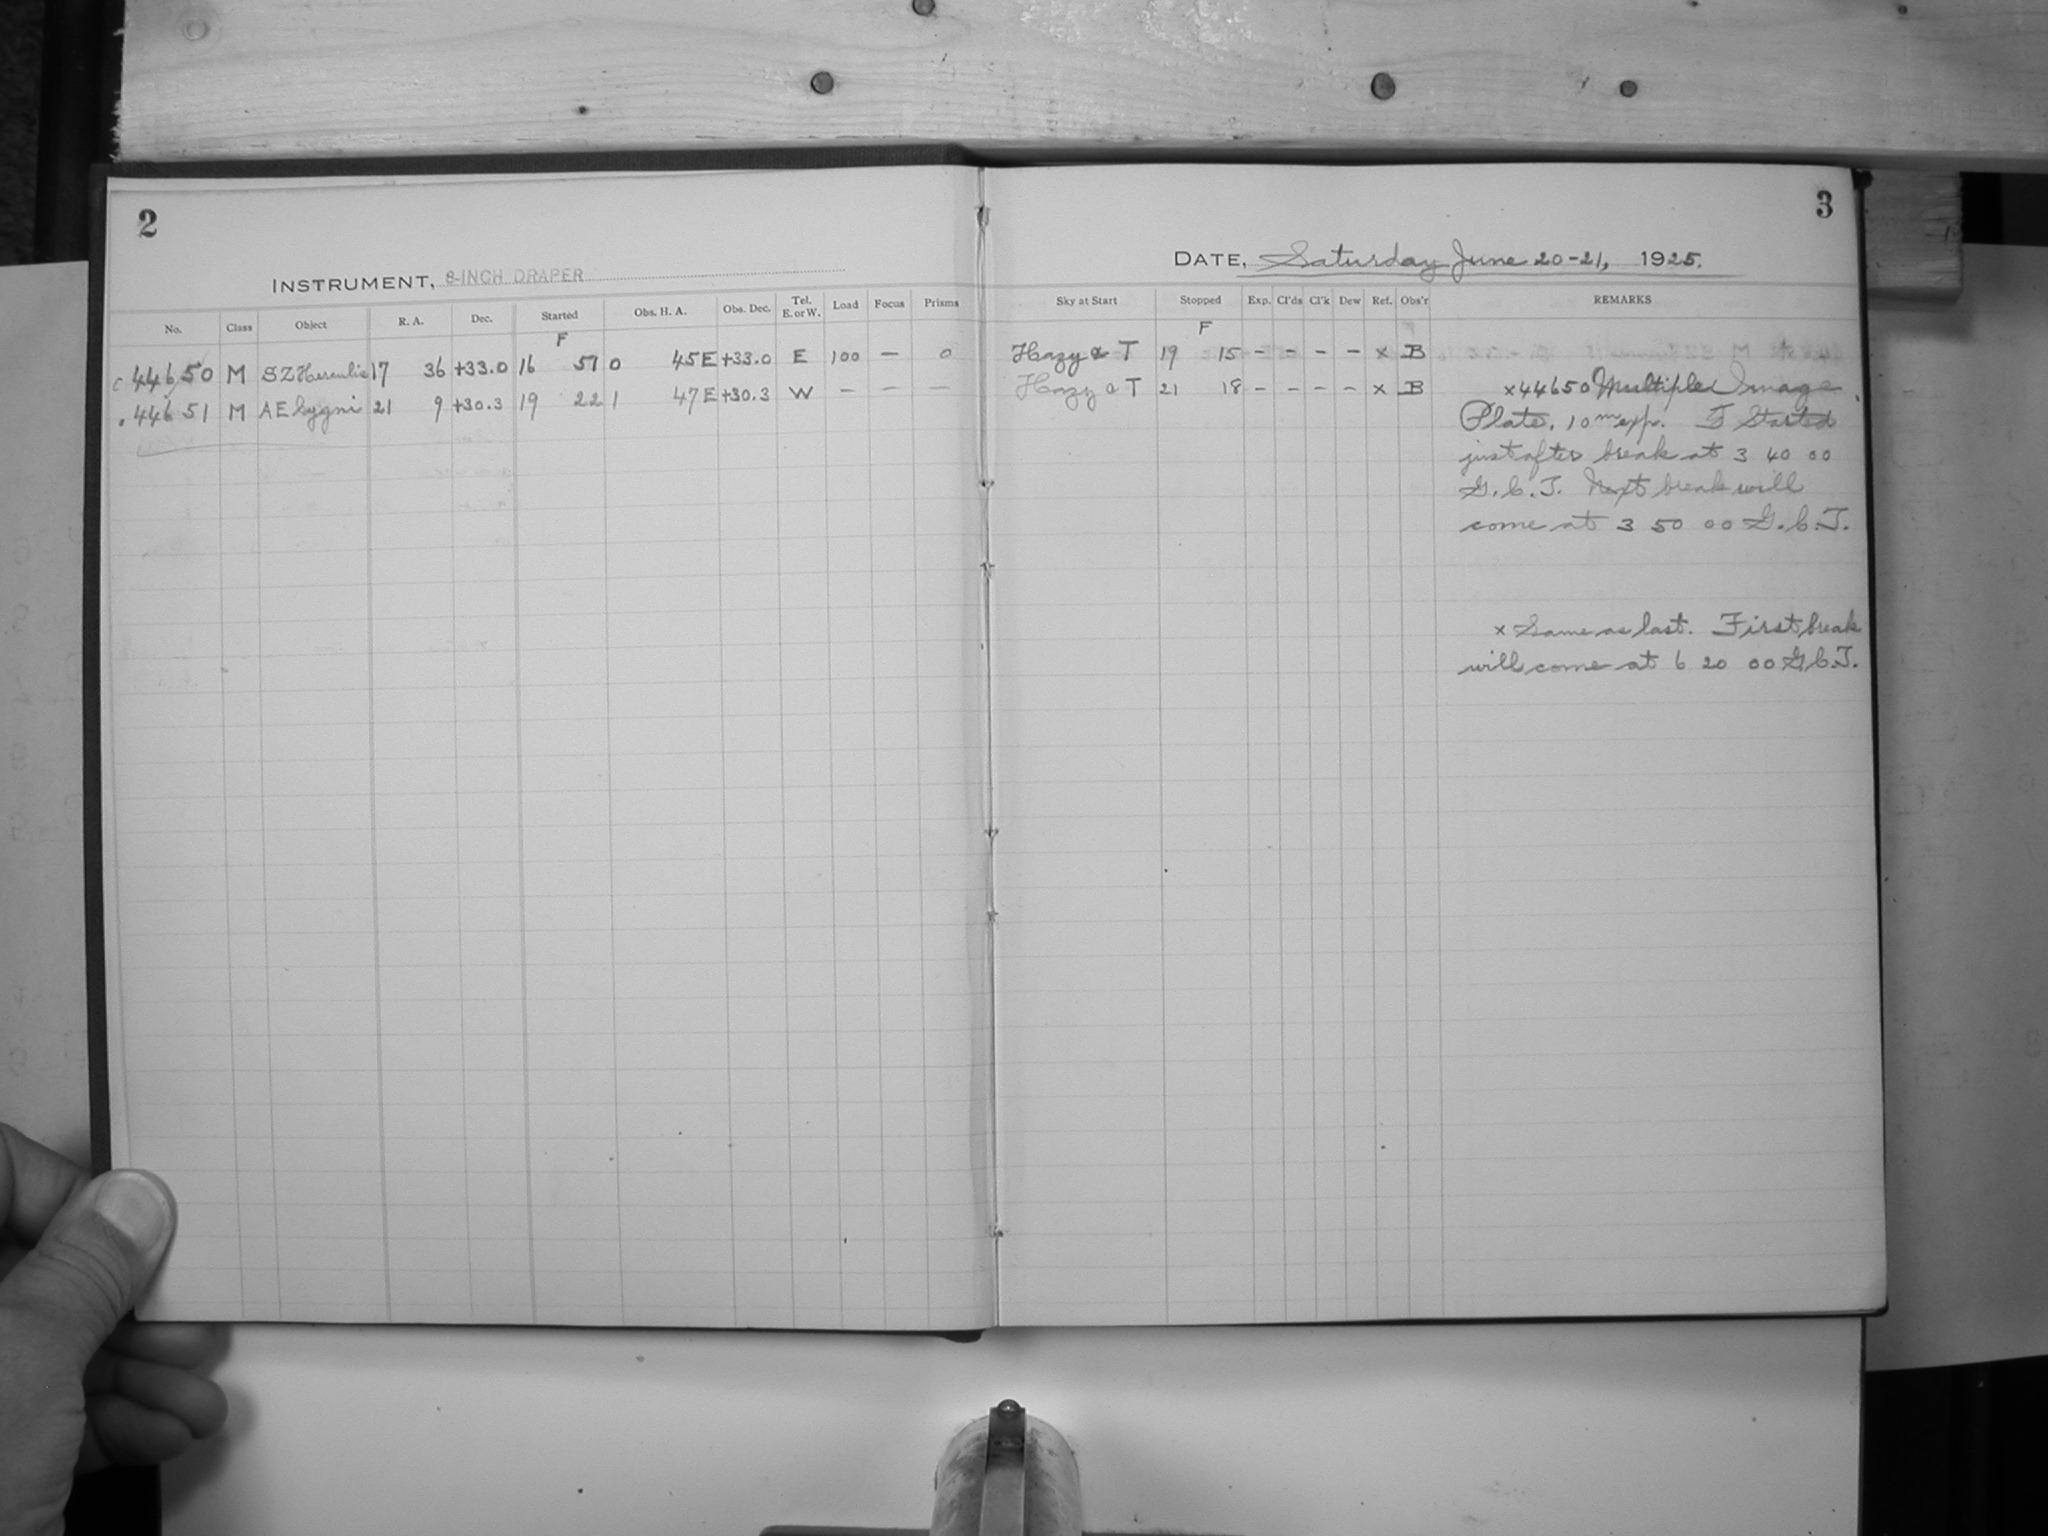 2
INSTRUMENT, 8-INCH DRAPER
No. Class Object R. A. Dec. Started Obs. H. A. Obs. Dec. Tel. E. or W. Load Focus Prisms
F
44650 M SZ Herculis 17 36 +33.0 16 57 0 45E +33.0 E 100 — 0
44651 M AE Cygni 21 9 +30.3 19 22 1 47E +30.3 W — — —
3
DATE, Saturday June 20-21, 1925.
Sky at Start Stopped Exp. Cl'ds Cl'k Dew Ref. Obs'r REMARKS
F
Hazy & T 19 15 - - - - x B
Hazy & T 21 18 - - - - x B
x44650 Multiple Image
Plate. 10m exp. F Started
just after break at 3 40 00
G.C.T. Next break will
come at 3 50 00 G.C.T.
x Same as last. First break
will come at 6 20 00 G.C.T.